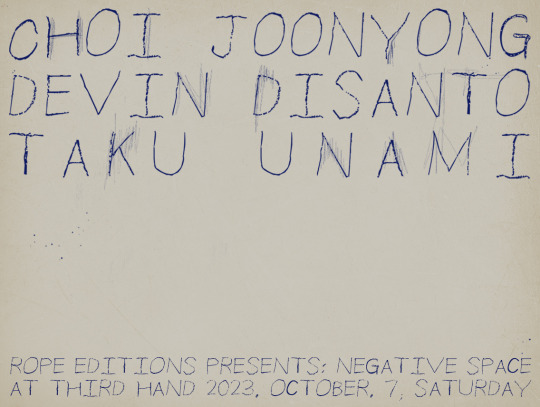 CHOI JOONYONG
DEVIN DISANTO
TAKU UNAMI
ROPE EDITIONS PRESENTS: NEGATIVE SPACE
AT THIRD HAND 2023, OCTOBER, 7, SATURDAY